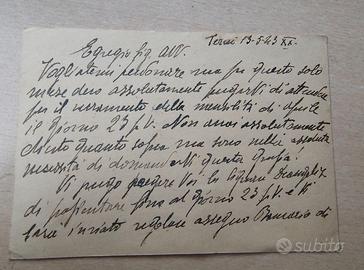 Terni 13-5-43 XX.
Egregio Sig. Avv.
Vogliatemi perdonare ma per questo solo
mese devo assolutamente pregarvi di attendere
per il versamento della mensilità di aprile
il giorno 23 p.V. Non avrei assolutamente
chiesto quanto sopra ma sono nella assoluta
necessità di domandarVi questa grazia!
Vi prego porgere Voi la
di pazientare fino al giorno 23 p.V. e Vi
sarà inviato regolare assegno Bancario di
subito